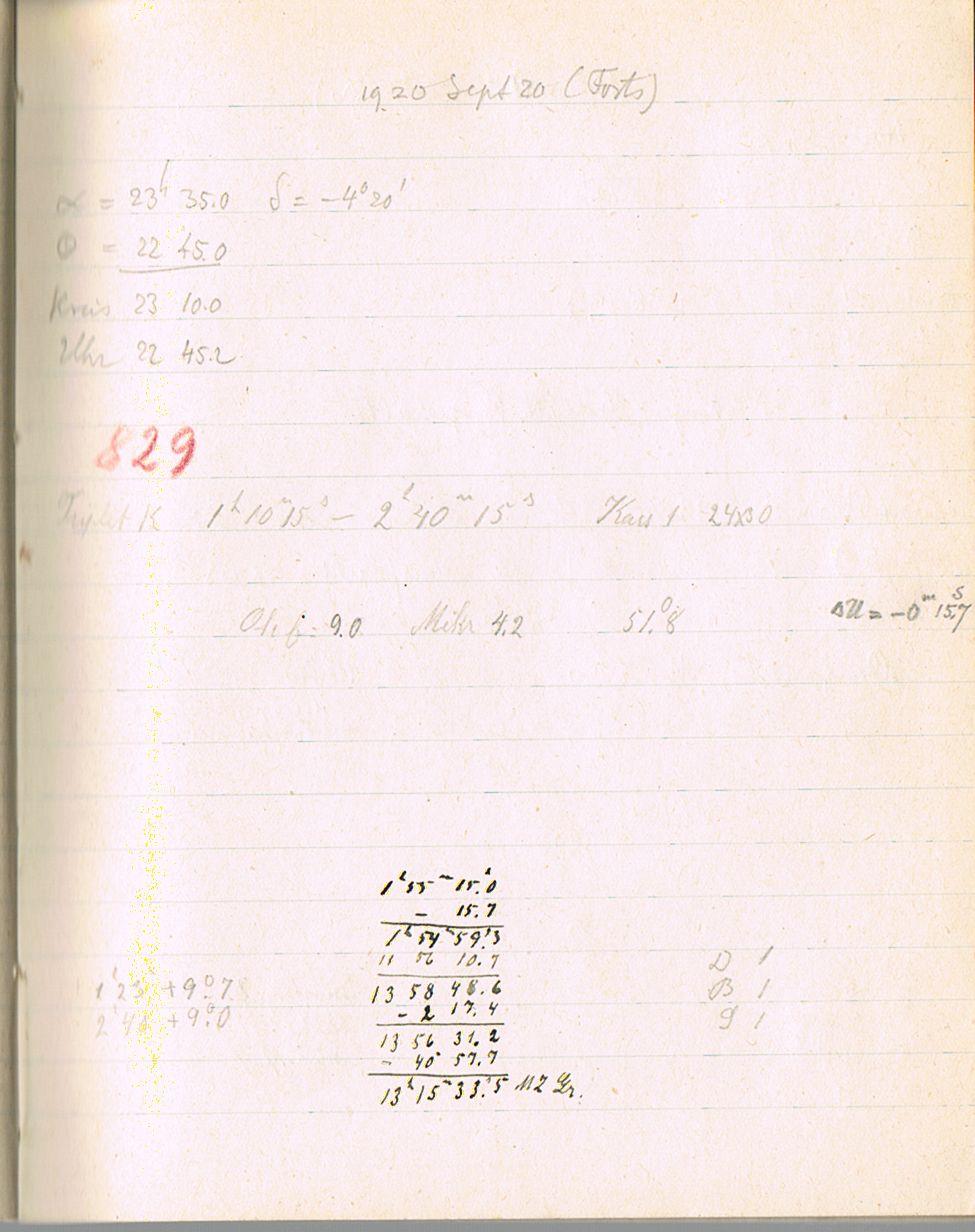 1920 Sept 20 (Forts)
α = 23ʰ 35.0 δ = -4° 20'
Θ = 22 45.0
Kreis 23 10.0
Uhr 22 45.2
829
Triplet K 1ʰ 10ᵐ 15ˢ – 2ʰ 40ᵐ 15ˢ Kass 1 24x30
Obj 9.0 Mikr 4.2 51.°8 ΔU = -0ᵐ 15.ˢ7
1ʰ 55ᵐ 15.ˢ0
- 15.7
1ʰ 54ᵐ 59.ˢ3
11 56 10.7
D 1
1ʰ 23 +9.°7 13 58 48.6 B 1
- 2 17.4
2ʰ +9.°0 S 1
13 56 31.2
- 40 57.7
13ʰ 15ᵐ 33.ˢ5 MZ Gr.